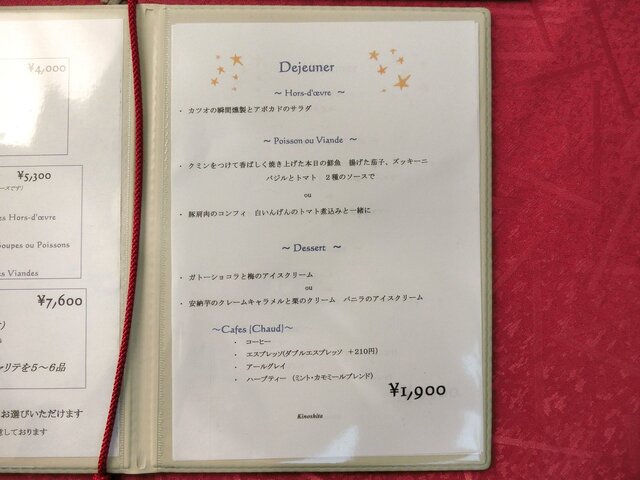 ¥4,000
¥5,300
es Hors-d'œvre
oupes ou Poissons
es Viandes
¥7,600
ァリテを5～6品
お選びいただけます
しております
Dejeuner
～ Hors-d'œvre ～
・ カツオの瞬間燻製とアボカドのサラダ
～ Poisson ou Viande ～
・ クミンをつけて香ばしく焼き上げた本日の鮮魚　揚げた茄子、ズッキーニ
バジルとトマト　2種のソースで
ou
・ 豚肩肉のコンフィ　白いんげんのトマト煮込みと一緒に
～ Dessert ～
・ ガトーショコラと梅のアイスクリーム
ou
・ 安納芋のクレームキャラメルと栗のクリーム　バニラのアイスクリーム
～Cafes (Chaud)～
・ コーヒー
・ エスプレッソ(ダブルエスプレッソ　+210円)
・ アールグレイ
・ ハーブティー　(ミント・カモミールブレンド)
¥1,900
Kinoshita